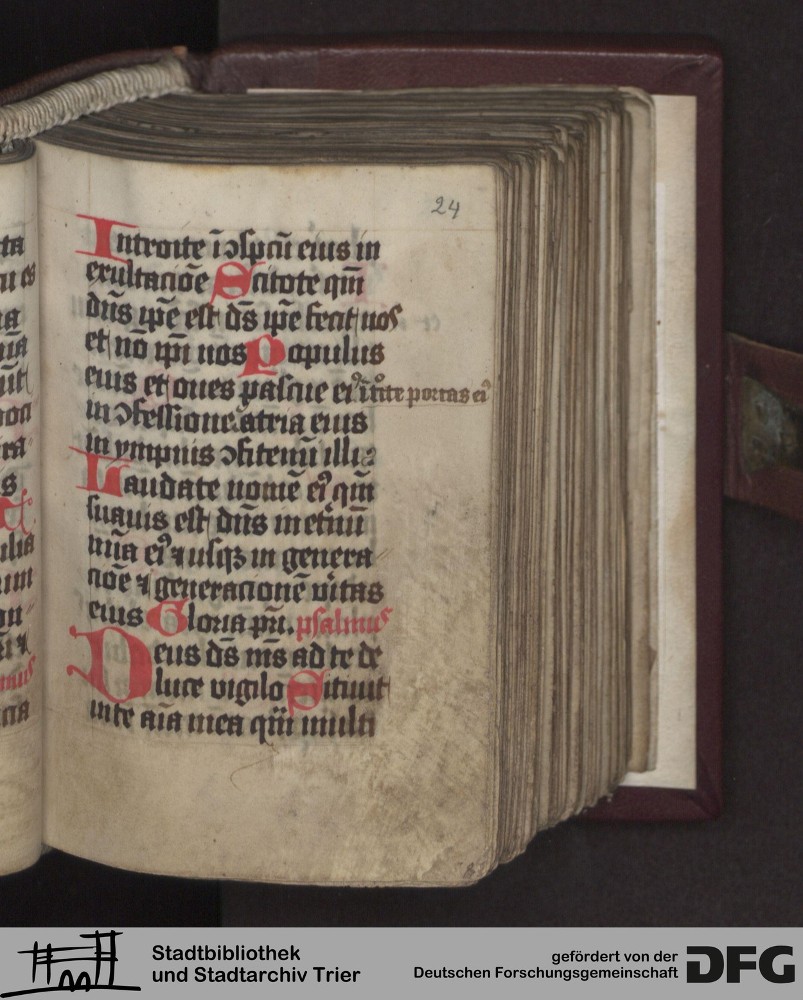 24
Introite ī ↄspcū eius in
exultacōe Scitote qm̄
dn̄s ip̄e est ds̄ ip̄e fecit nos
et nō ip̄i nos Populus
eius et oues pascue eiꝰ ītͥte portas eiꝰ
in ↄfessione atria eius
in ympnis ↄfitemī illi
Laudate nomē eiꝰ qm̄
suauis est dn̄s in etnū
mīa eiꝰ ⁊ usqꝫ in genera
cōe ⁊ generacionē vītas
eius Gloria pr̄i. psalmus
Deus ds̄ ms̄ ad te de
luce vigilo Sitiuit
in te aīa mea qm̄ multi
Stadtbibliothek
und Stadtarchiv Trier
gefördert von der
Deutschen Forschungsgemeinschaft
DFG